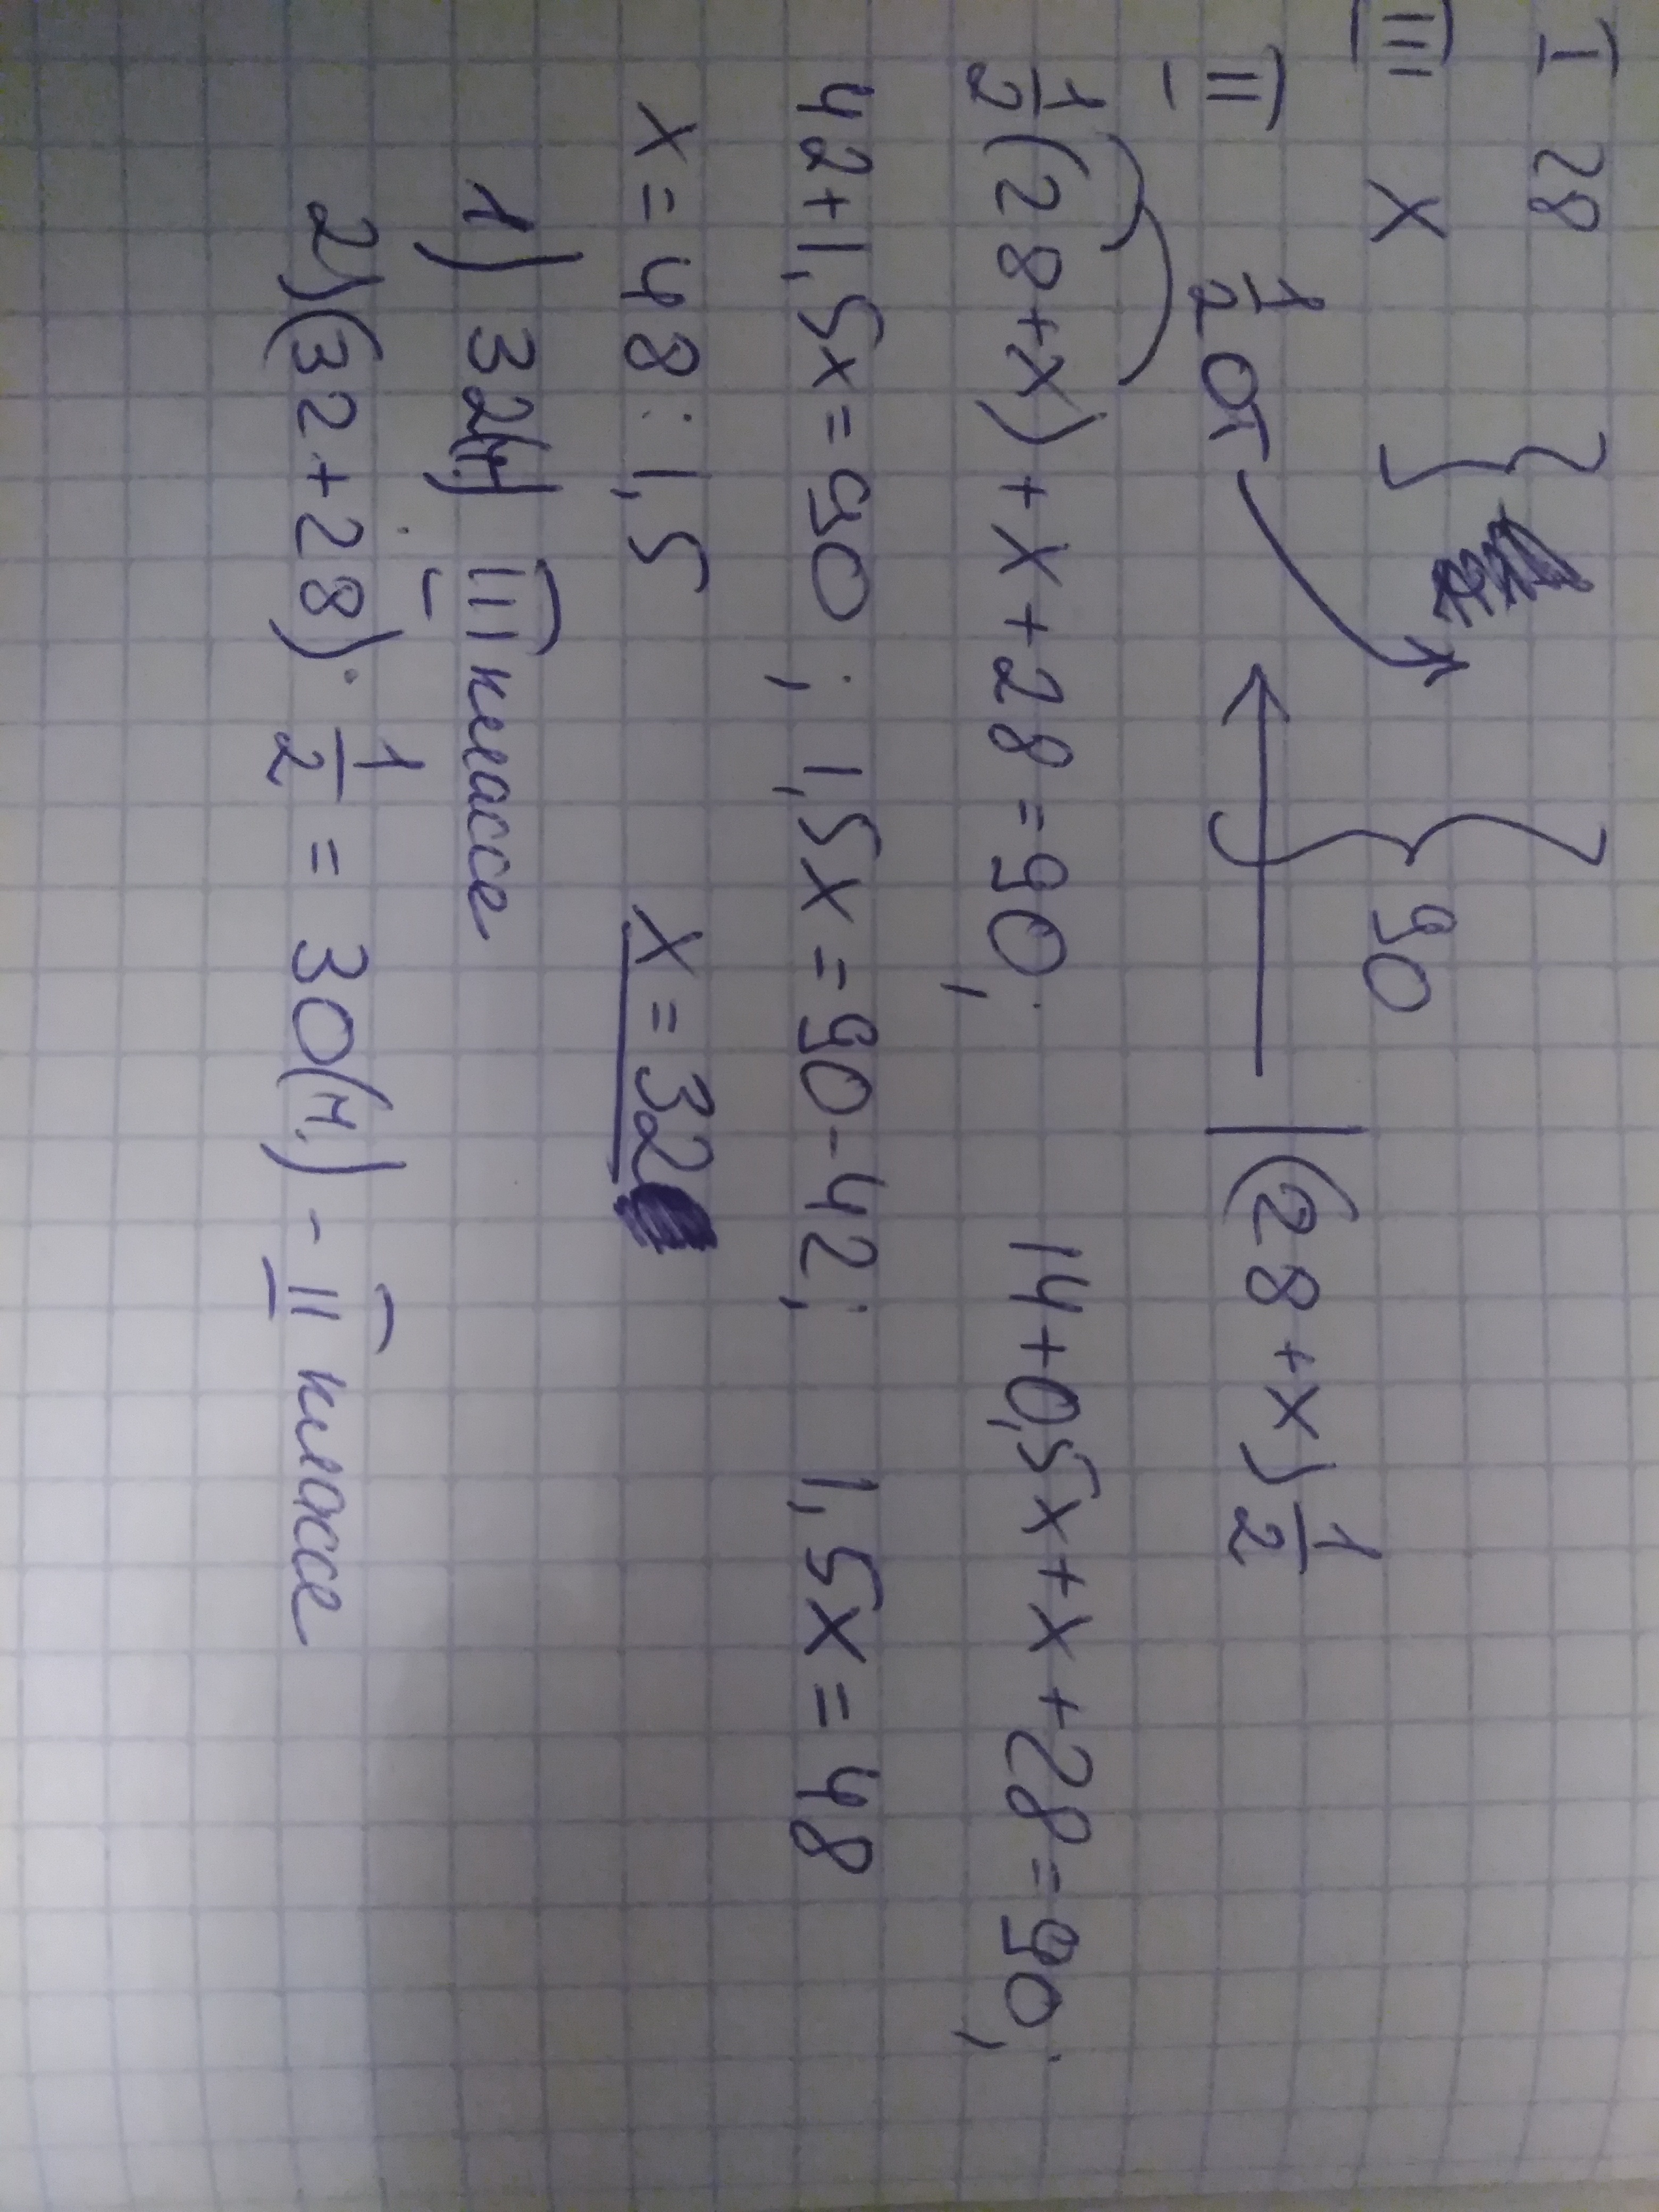 I 28
III X } } 90
II 1/2 от | (28+x) 1/2
1/2(28+x)+x+28=90; 14+0,5x+x+28=90;
42+1,5x=90; 1,5x=90-42; 1,5x=48
x=48:1,5 x=32
1) 32(ч) III классе
2)(32+28)·1/2=30(ч.)-II классе